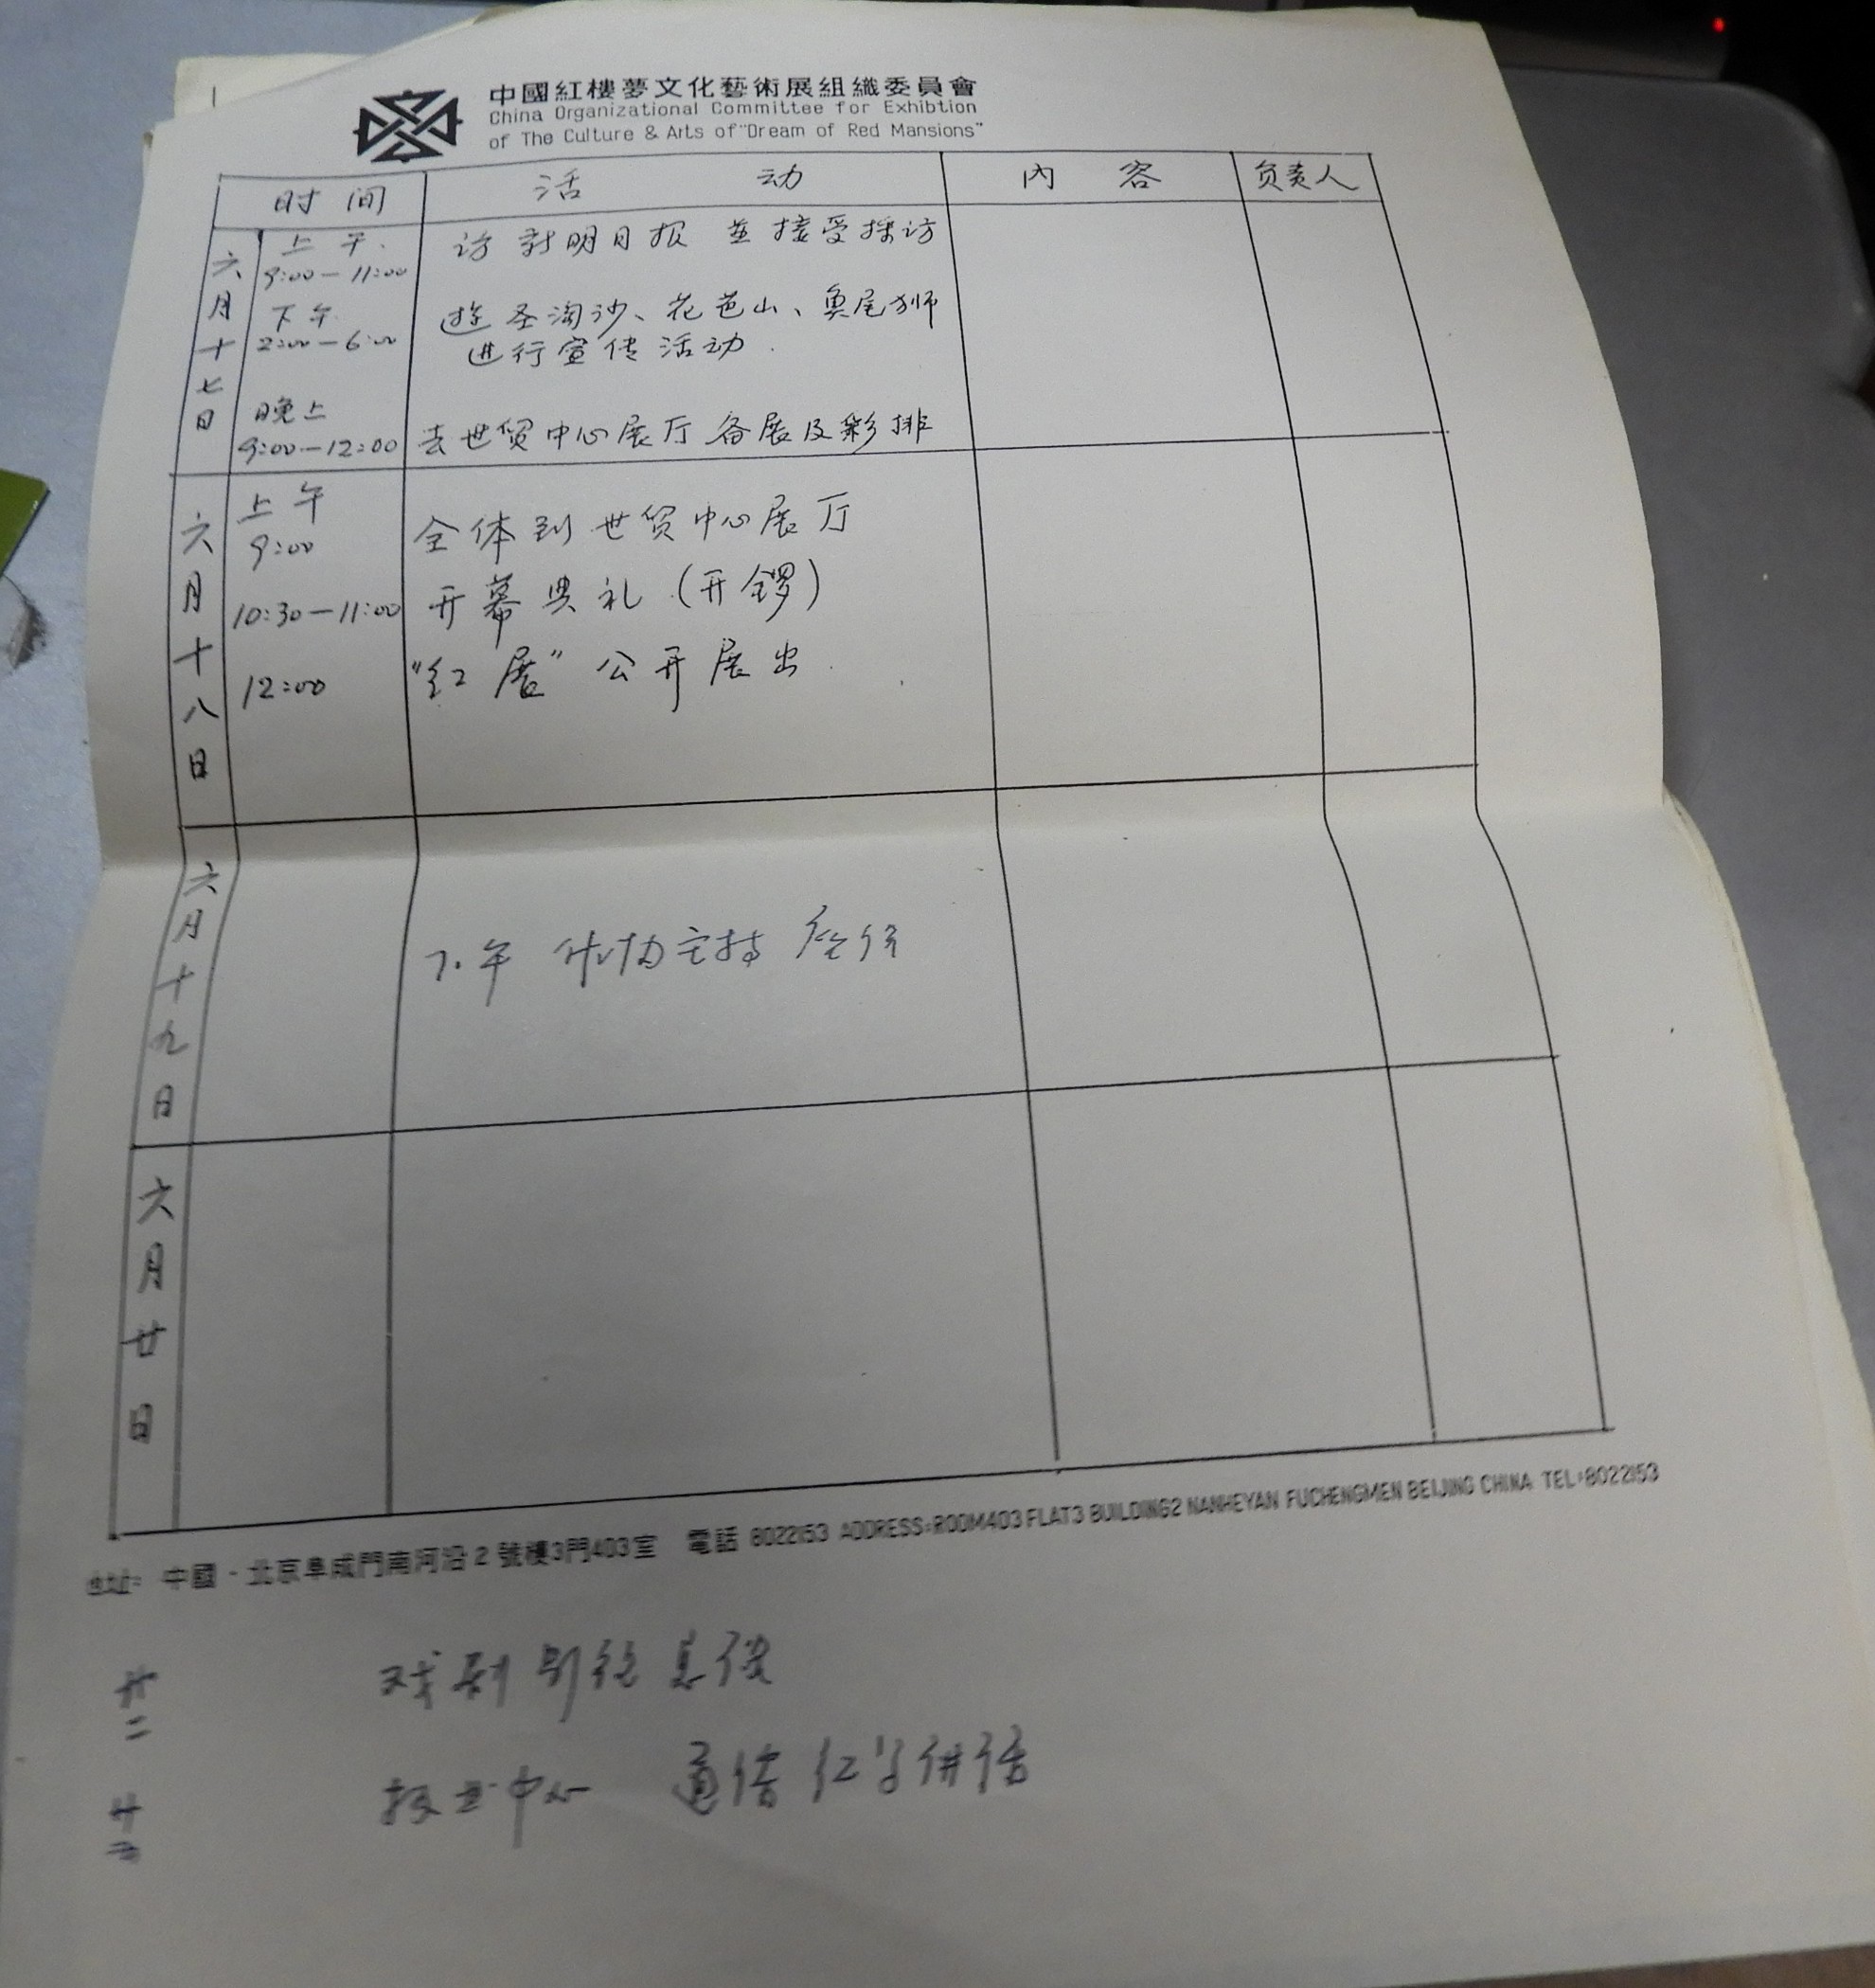 中國紅樓夢文化藝術展組織委員會
China Organizational Committee for Exhibtion
of The Culture & Arts of "Dream of Red Mansions"
时间 活动 内容 负责人
六月十七日
上午
9:00—11:00 访新明日报 並接受採访
下午
2:00—6:00 游圣淘沙、花芭山、鱼尾狮
进行宣传活动.
晚上
9:00—12:00 去世贸中心展厅备展及彩排
六月十八日
上午
9:00 全体到世贸中心展厅
10:30—11:00 开幕典礼(开鑼)
12:00 "红展"公开展出.
六月十九日
下午 作协主持 座谈
六月廿日
地址: 中國·北京阜成門南河沿2號樓3門403室 電話 8022153 ADDRESS:ROOM403 FLAT3 BUILDING2 NANHEYAN FUCHENGMEN BEIJING CHINA TEL:8022153
廿二 戏剧
廿三 报业中心 通俗红学讲话